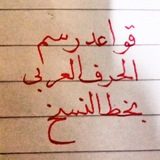 قواعد رسم
الحرف العربي
بخط النسخ